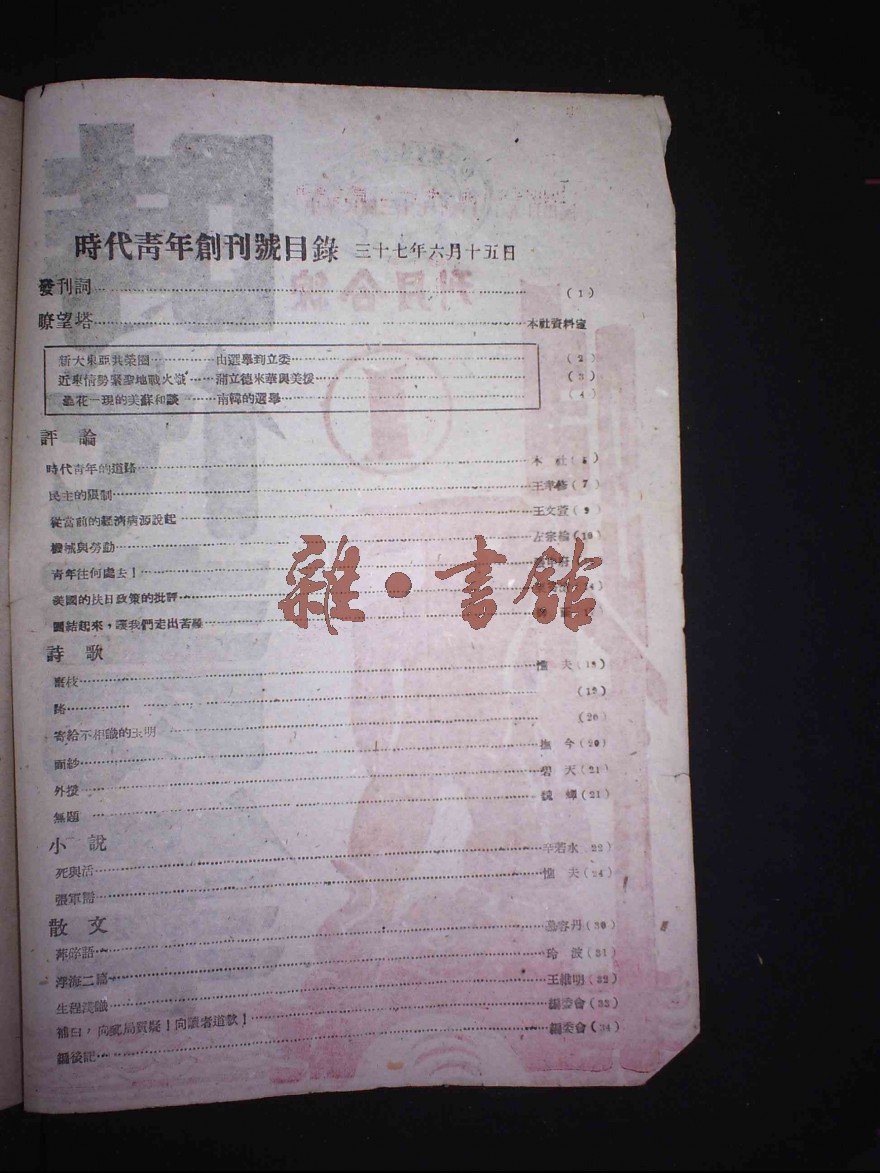 時代青年創刊號目錄 三十七年六月十五日
發刊詞 (1)
瞭望塔 本社資料室
新大東亞共榮圈 由選舉到立委 (2)
近東情勢緊聖地戰火 蒲立德來華與美援 (3)
花一現的美蘇和談 南韓的選舉 (4)
評論
時代青年的道路 本社 (5)
民主的限制 (7)
從當前的經濟病源說起 王文萱 (9)
機械與勞動 左宗榆 (10)
青年往何處去!
美國的扶日政策的批評
團結起來,讓我們走出苦難
雜·書館
詩歌
舊枝 惟夫 (18)
路 (19)
寄給不相識的 明 (20)
面紗 撫今 (20)
外援 碧天 (21)
無題 (21)
小說
死與活 辛若水 (22)
張軍 惟夫 (24)
散文
萍踪語 慕容丹 (30)
浮海二篇 玲波 (31)
生程淺 王維明 (32)
補白,向郵局質疑!向讀者道歉! 編委會 (33)
編後記 編委會 (34)